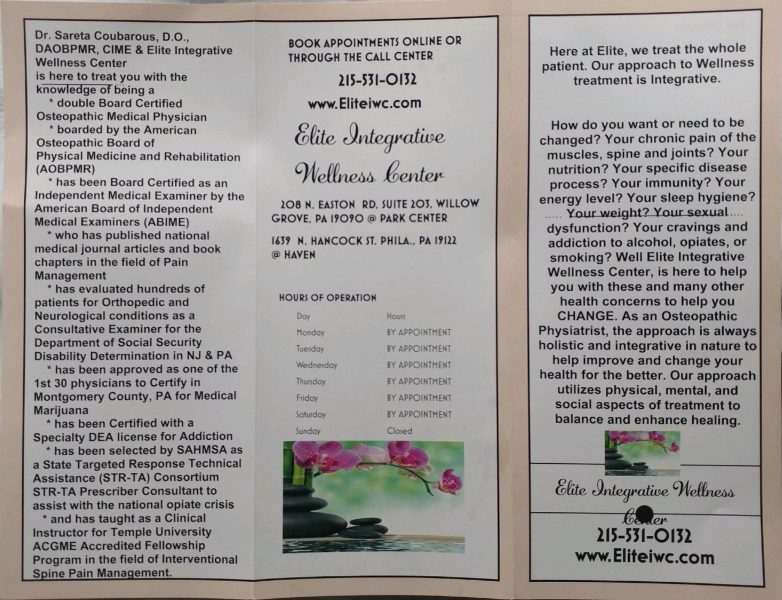 Dr. Sareta Coubarous, D.O.,
DAOBPMR, CIME & Elite Integrative
Wellness Center
is here to treat you with the
knowledge of being a
* double Board Certified
Osteopathic Medical Physician
* boarded by the American
Osteopathic Board of
Physical Medicine and Rehabilitation
(AOBPMR)
* has been Board Certified as an
Independent Medical Examiner by the
American Board of Independent
Medical Examiners (ABIME)
* who has published national
medical journal articles and book
chapters in the field of Pain
Management
* has evaluated hundreds of
patients for Orthopedic and
Neurological conditions as a
Consultative Examiner for the
Department of Social Security
Disability Determination in NJ & PA
* has been approved as one of the
1st 30 physicians to Certify in
Montgomery County, PA for Medical
Marijuana
* has been Certified with a
Specialty DEA license for Addiction
* has been selected by SAHMSA as
a State Targeted Response Technical
Assistance (STR-TA) Consortium
STR-TA Prescriber Consultant to
assist with the national opiate crisis
* and has taught as a Clinical
Instructor for Temple University
ACGME Accredited Fellowship
Program in the field of Interventional
Spine Pain Management.
BOOK APPOINTMENTS ONLINE OR
THROUGH THE CALL CENTER
215-531-0132
www.Eliteiwc.com
Elite Integrative
Wellness Center
208 N. EASTON RD, SUITE 203, WILLOW
GROVE, PA 19090 @ PARK CENTER
1639 N. HANCOCK ST. PHILA., PA 19122
@ HAVEN
HOURS OF OPERATION
Day Hours
Monday BY APPOINTMENT
Tuesday BY APPOINTMENT
Wednesday BY APPOINTMENT
Thursday BY APPOINTMENT
Friday BY APPOINTMENT
Saturday BY APPOINTMENT
Sunday Closed
Here at Elite, we treat the whole
patient. Our approach to Wellness
treatment is Integrative.
How do you want or need to be
changed? Your chronic pain of the
muscles, spine and joints? Your
nutrition? Your specific disease
process? Your immunity? Your
energy level? Your sleep hygiene?
Your weight? Your sexual
dysfunction? Your cravings and
addiction to alcohol, opiates, or
smoking? Well Elite Integrative
Wellness Center, is here to help
you with these and many other
health concerns to help you
CHANGE. As an Osteopathic
Physiatrist, the approach is always
holistic and integrative in nature to
help improve and change your
health for the better. Our approach
utilizes physical, mental, and
social aspects of treatment to
balance and enhance healing.
Elite Integrative Wellness
Center
215-531-0132
www.Eliteiwc.com